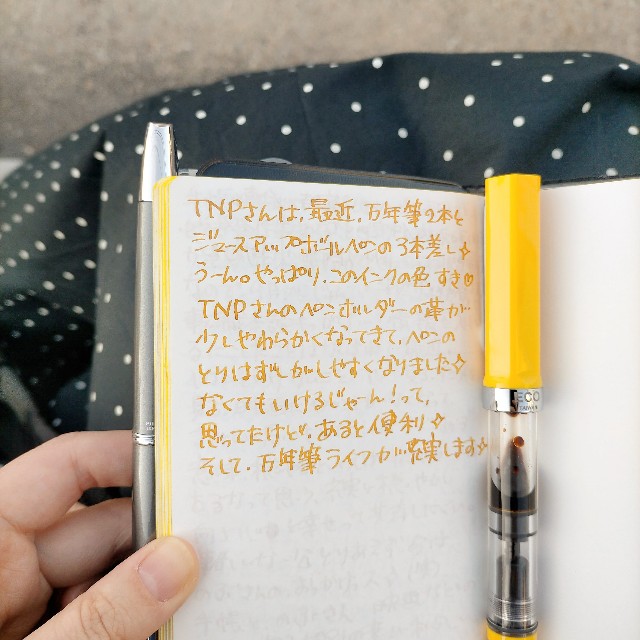 TNPさんは、最近、万年筆2本と
ジュースアップボールペンの3本差し✧
うーん。やっぱり、このインクの色すき♡
TNPさんのペンホルダーの革が
少しやわらかくなってきて、ペンの
とりはずしがしやすくなりました✧
なくてもいけるじゃん!って、
思ってたけど、あると便利✧
そして、万年筆ライフが充実します✧
ECO
TAIWAN